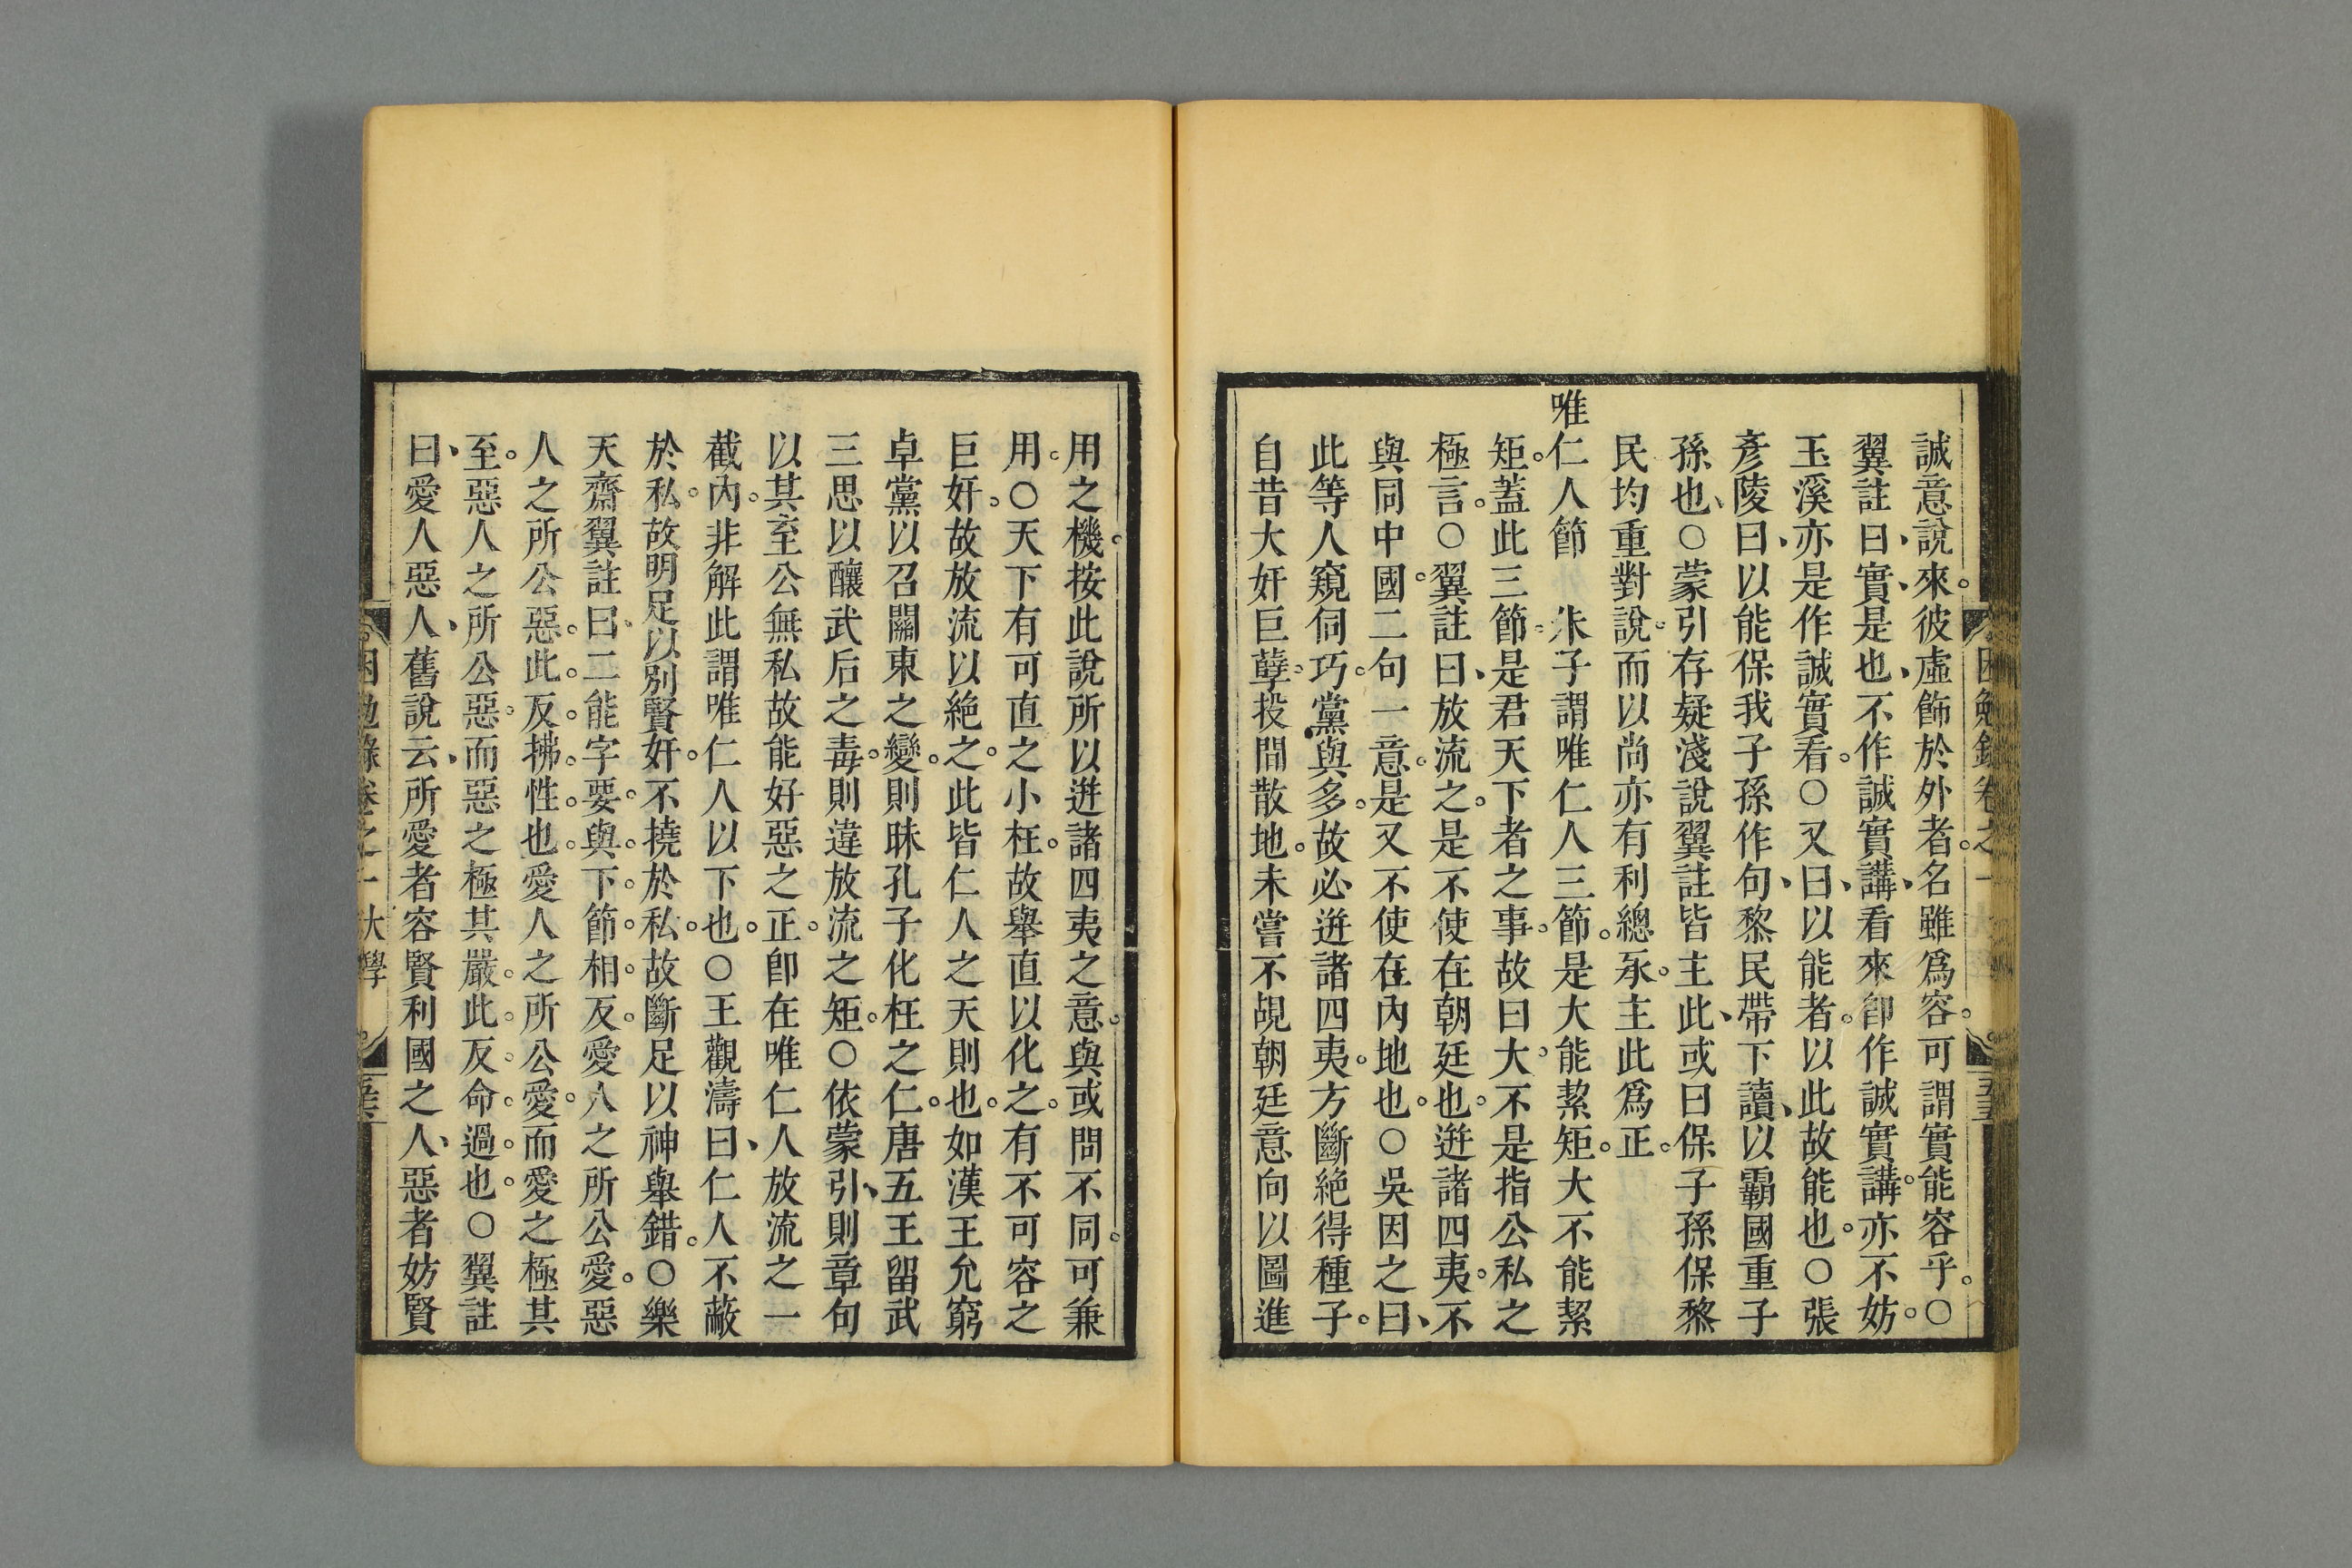 誠意說來。彼虛飾於外者。名雖爲容。可謂實能容乎。○
翼註曰、實、是也、不作誠實講、看來卽作誠實講。亦不妨。
玉溪亦是作誠實看。○又曰、以能者。以此故能也。○張
彥陵曰、以能保我子孫作句、黎民帶下讀、以霸國重子
孫也、○蒙引存疑淺說翼註皆主此、或曰保子孫保黎
民均重對說。而以尚亦有利總承。主此爲正。
唯仁人節　朱子謂唯仁人三節。是大能絜矩。大不能絜
矩。蓋此三節。是君天下者之事。故曰大。不是指公私之
極言。○翼註曰、放流之。是不使在朝廷也。迸諸四夷。不
與同中國。二句一意。是又不使在內地也。○吳因之曰、
此等人窺伺巧。黨與多。故必迸諸四夷。方斷絕得種子。
自昔大奸巨孽。投閒散地。未嘗不覘朝廷意向以圖進
困勉錄卷之一
五五
用之機。按此說所以迸諸四夷之意。與或問不同。可兼
用。○天下有可直之小枉。故舉直以化之。有不可容之
巨奸。故放流以絕之。此皆仁人之天則也。如漢王允窮
卓黨以召關東之變。則昧孔子化枉之仁。唐五王留武
三思以釀武后之毒。則違放流之矩。○依蒙引、則章句
以其至公無私故能好惡之正。卽在唯仁人放流之一
截內。非解此謂唯仁人以下也。○王觀濤曰、仁人不蔽
於私。故明足以別賢奸。不撓於私。故斷足以神舉錯。○樂
天齋翼註曰、二能字要與下節相反。愛人之所公愛。惡
人之所公惡。此反拂性也。愛人之所公愛。而愛之極其
至。惡人之所公惡。而惡之極其嚴。此反命過也。○翼註
曰、愛人惡人、舊說云、所愛者容賢利國之人、惡者妨賢
困勉錄卷之一 大學